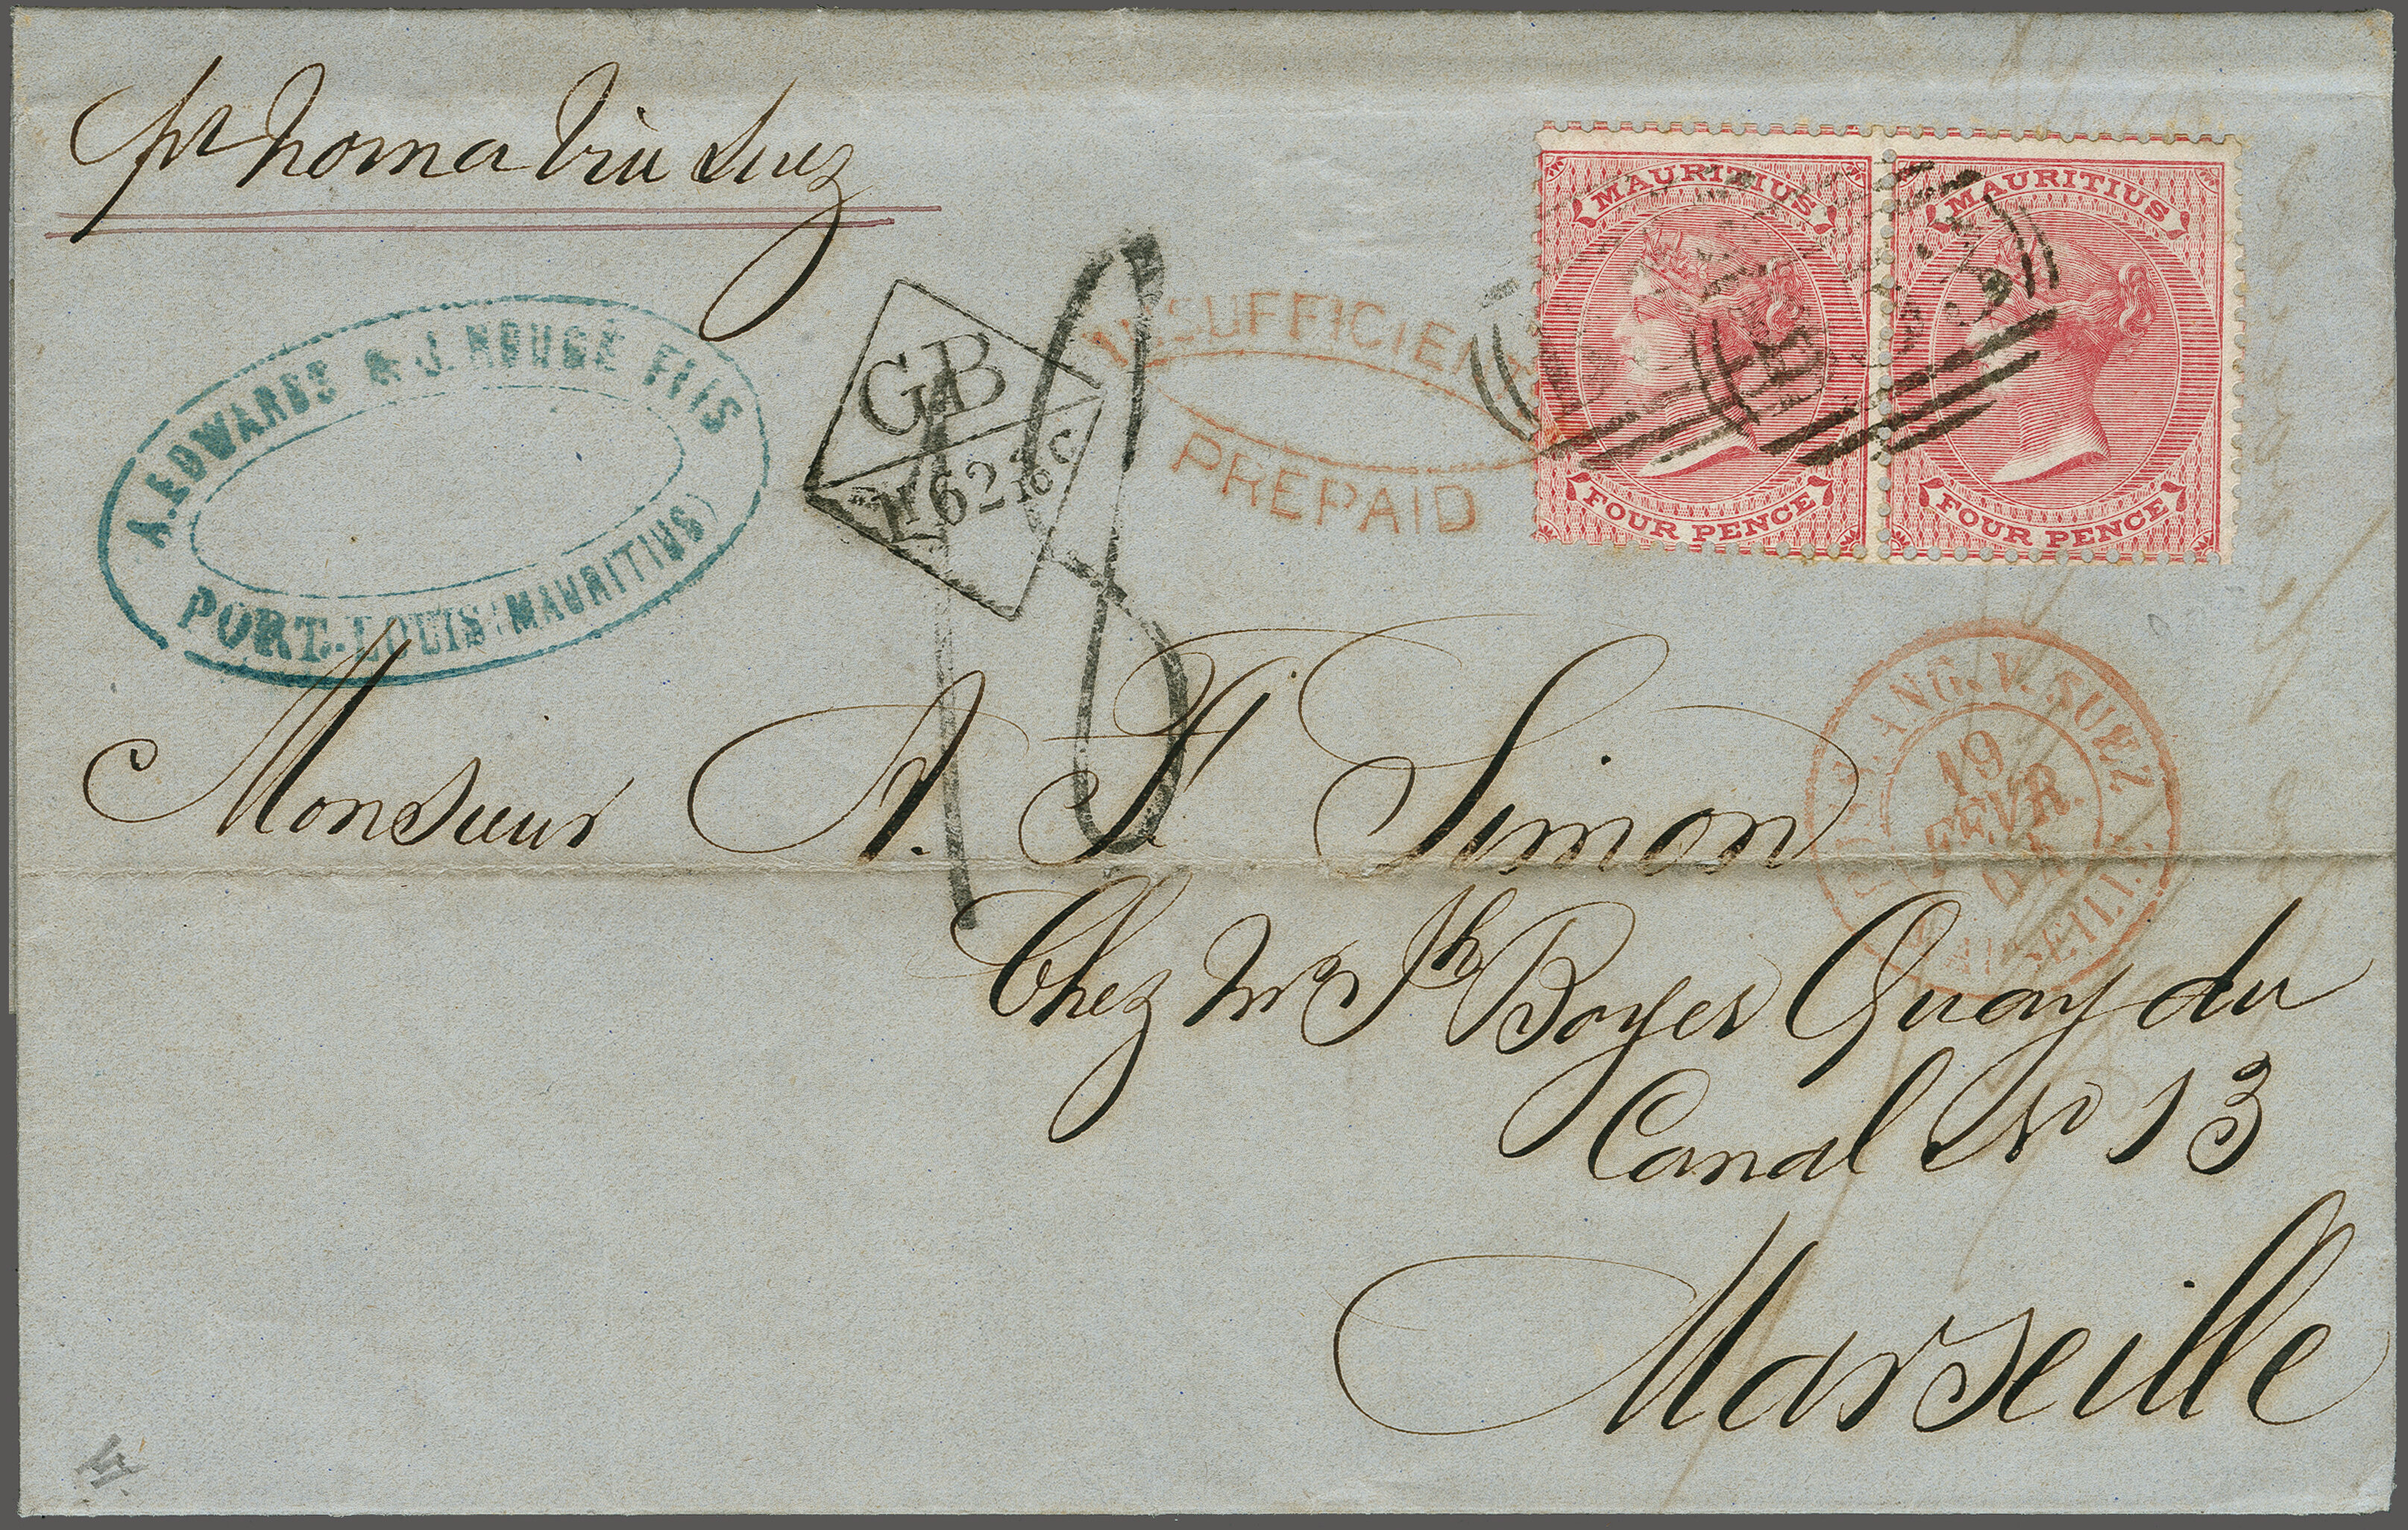 pr norna Via Suez
A. EDWARDS & J. ROUGÉ FILS
PORT-LOUIS (MAURITIUS)
GB
1F62 4/10 C
18
INSUFFICIENTLY
PREPAID
MAURITIUS
FOUR PENCE
MAURITIUS
FOUR PENCE
B53
POSS. ANG. V. SUEZ
19
FEVR.
MARSEILLE
Monsieur A. F. Simon
Chez Mr Jh Boyer Quay du
Canal No 13
Marseille